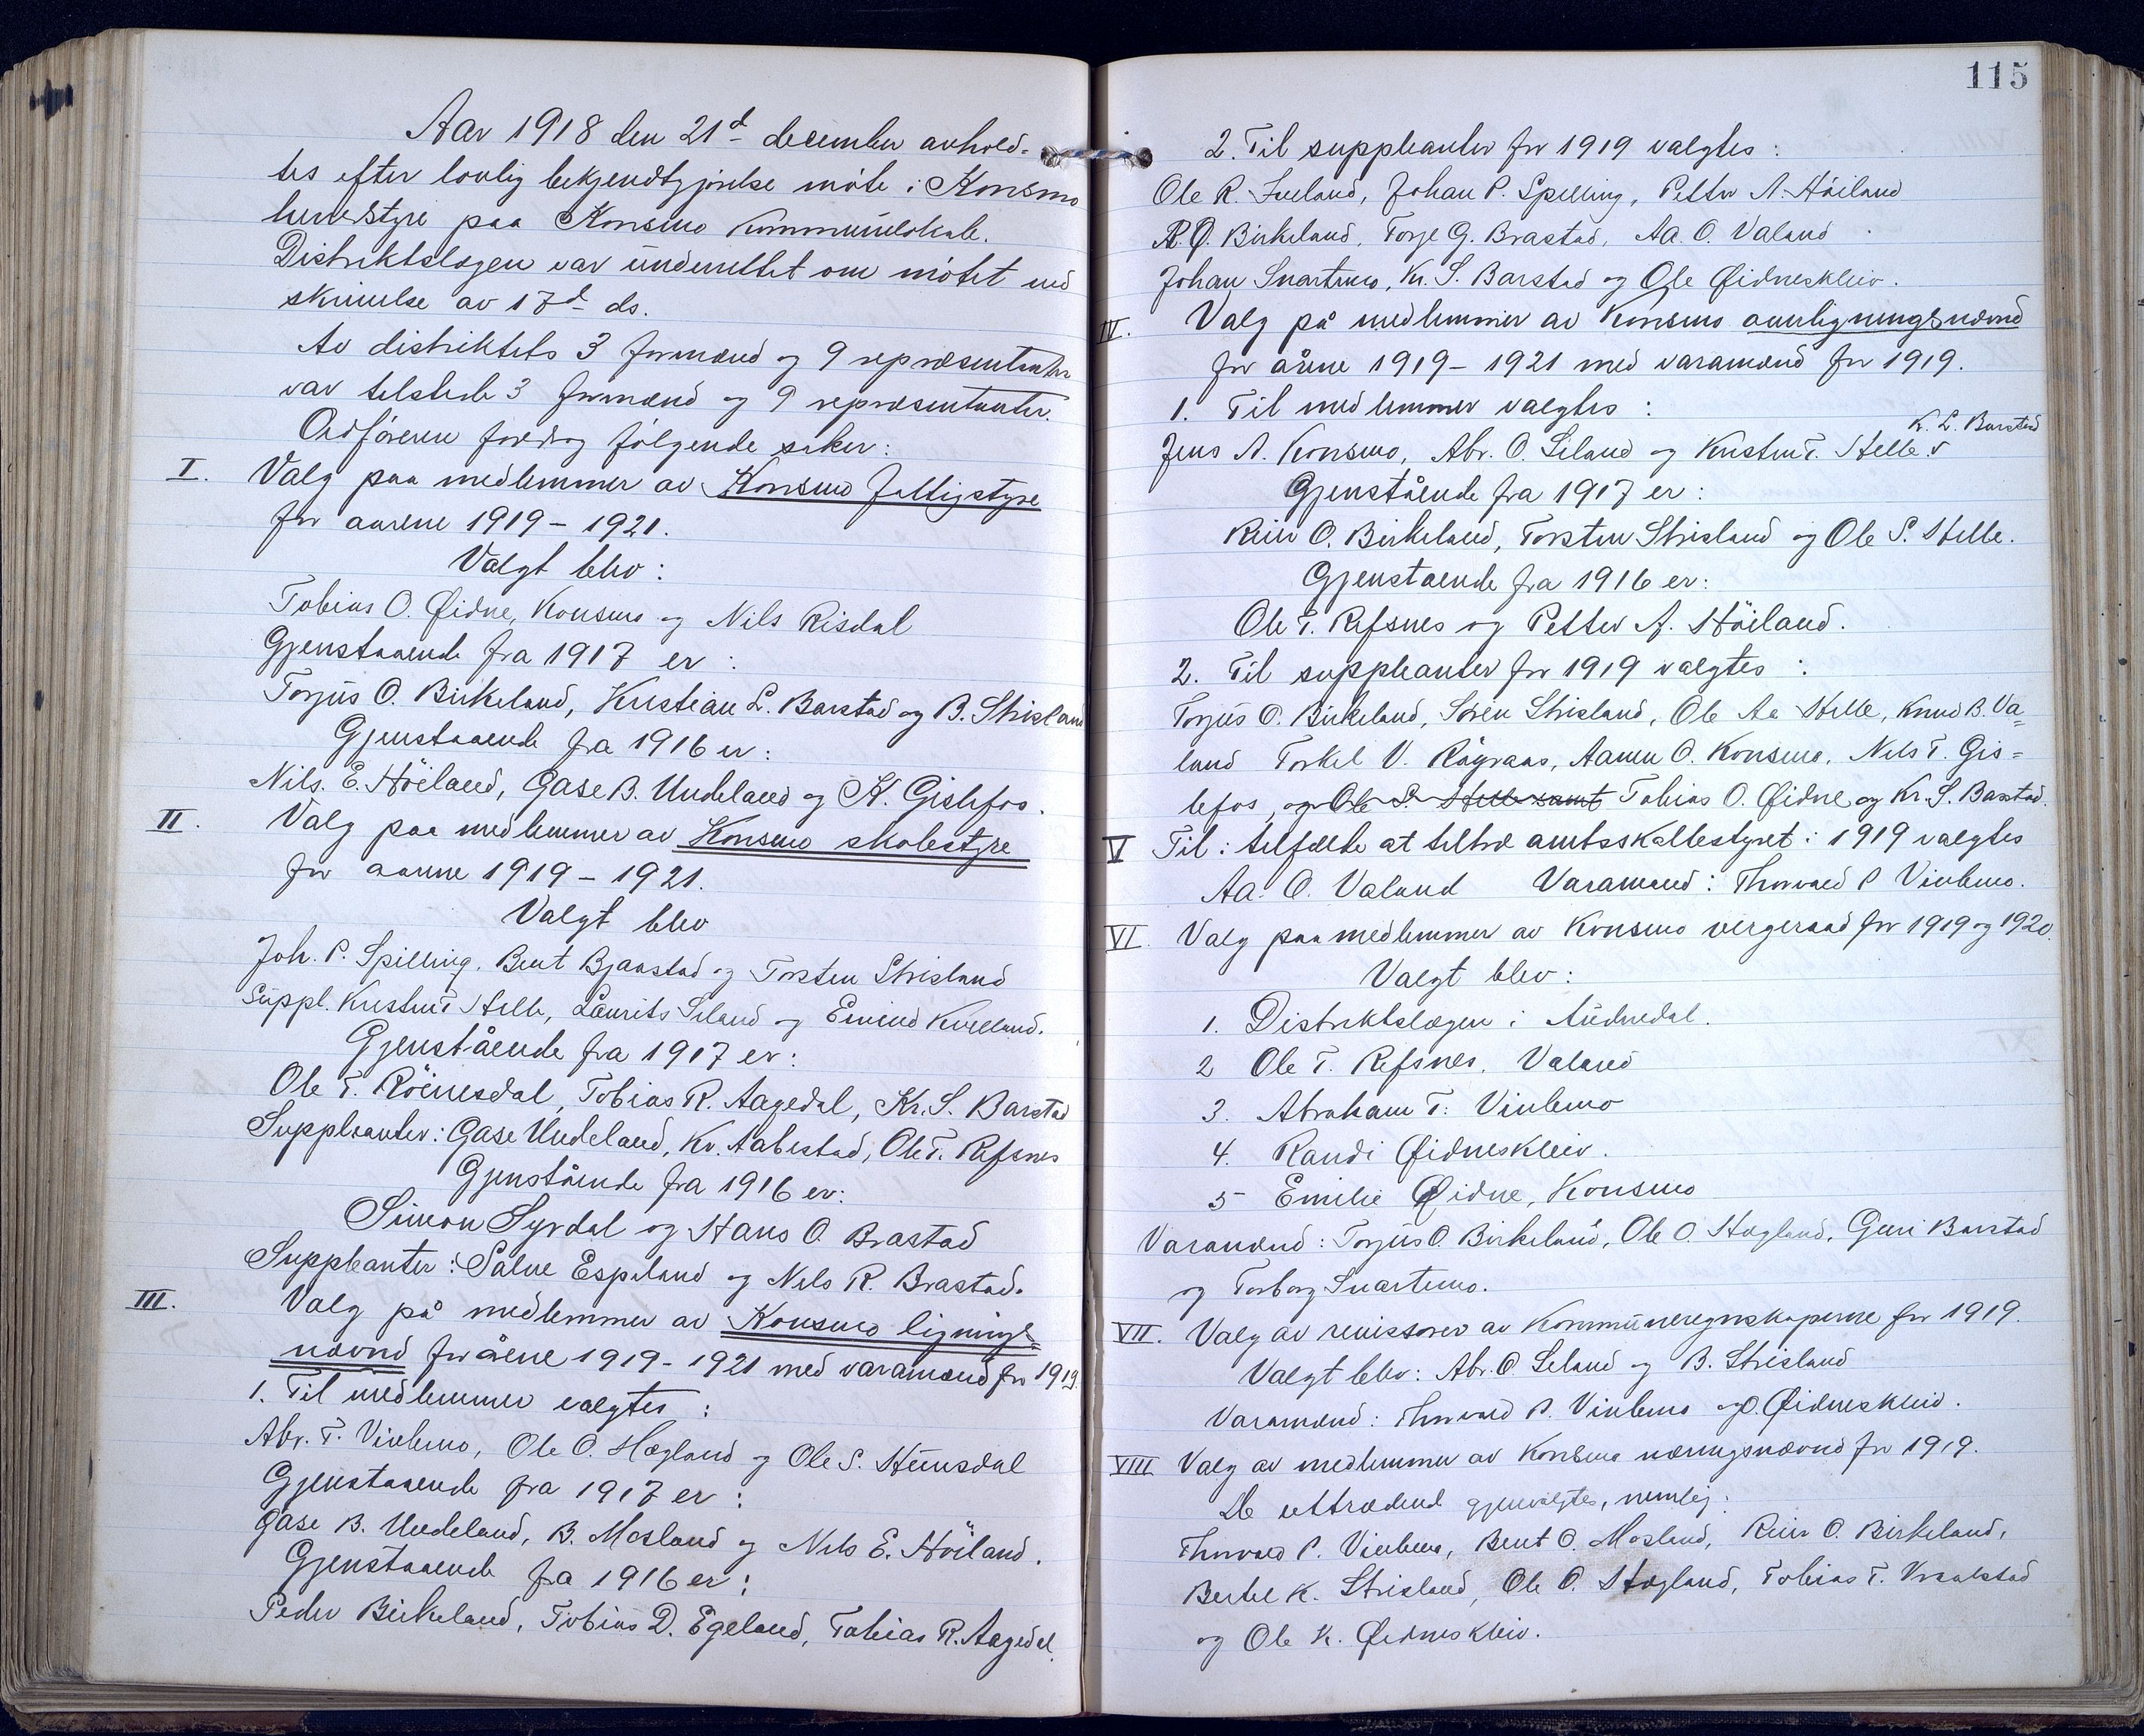 Aar 1918 den 21d december avhold-
tes efter lovlig bekjendtgjörelse möte i Konsmo
herredstyre paa Konsmo kommunelokale.
Distriktslægen var underrettet om mötet ved
skrivelse av 17d ds.
Av distriktets 3 formænd og 9 repræsentanter
var tilstede 3 formænd og 9 repræsentanter.
Ordföreren foredrog fölgende saker:
I. Valg paa medlemmer av Konsmo fattigstyre
for aarene 1919 - 1921.
Valgt blev:
Tobias O. Øidne, Konsmo og Nils Risdal
Gjenstaaende fra 1917 er:
Torjus O. Birkeland, Kristian L. Barstad og B. Strisland
Gjenstaaende fra 1916 er:
Nils. E. Höiland, Gase B. Undeland og K. Gislefos.
II. Valg paa medlemmer av Konsmo skolestyre
for aarene 1919 - 1921.
Valgt blev
Joh. P. Spilling, Bent Bjaastad og Torsten Strisland
Suppl. Kristen T Helle, Laurits Seland og Eivind Kvelland.
Gjenstående fra 1917 er:
Ole T. Röinesdal, Tobias R. Aagedal, Kr. S. Barstad
Suppleanter: Gase Undeland, Kr. Aabestad, Ole T. Refsnes
Gjenstående fra 1916 er:
Simon Syrdal og Hans O. Brastad
Suppleanter: Salve Espeland og Nils R. Brastad.
III. Valg på medlemmer av Konsmo lignings-
nævnd for årene 1919 - 1921 med varamænd for 1919.
1. Til medlemmer valgtes:
Abr. T. Vivlemo, Ole O. Hægland og Ole S. Heimsdal
Gjenstaaende fra 1917 er:
Gase B. Undeland, B. Mosland og Nils E. Höiland.
Gjenstaaende fra 1916 er:
Peder Birkeland, Tobias D. Egeland, Tobias R. Aagedal.
115
2. Til suppleanter for 1919 valgtes:
Ole R. Sveland, Johan P. Spilling, Petter A. Höiland
R. O. Birkeland, Torje G. Brastad, Aa. O. Valand
Johan Snartemo, Kr. S. Barstad og Ole Øidneskleiv.
IV. Valg på medlemmer av Konsmo overligningsnævnd
for årene 1919 - 1921 med varamænd for 1919.
1. Til medlemmer valgtes:
K. L. Barstad
Jens A. Konsmo, Abr. O. Seland og Kristen T. Helle. v
Gjenstående fra 1917 er:
Reier O. Birkeland, Torsten Strisland og Ole S. Helle.
Gjenstaende fra 1916 er:
Ole T. Refsnes og Petter A. Höiland.
2. Til suppleanter for 1919 valgtes:
Torjus O. Birkeland, Sören Strisland, Ole Aa Helle, Knud B. Va=
land Torkel V. Rågvaas, Aanen O. Konsmo, Nils T. Gis=
lefos, og Ole S. Helle samt Tobias O. Øidne og Kr. S. Barstad.
V Til i tilfælde at tiltræ amtsskattestyret i 1919 valgtes
Aa. O. Valand Varamand: Thorvald P Vivlemo.
VI. Valg paa medlemmer av Konsmo vergeraad for 1919 og 1920.
Valgt blev:
1. Distriktslægen i Audnedal.
2 Ole T. Refsnes, Valand
3. Abraham T. Vivlemo
4. Randi Øidneskleiv.
5 Emilie Øidne, Konsmo
Varamænd: Torjus O. Birkeland, Ole O. Hægland, Guri Barstad
og Torborg Snartemo.
VII. Valg av revisorer av kommuneregnskaperne for 1919.
Valgt blev: Abr. O. Seland og B. Strisland
Varamænd: Thorvald P. Vivlemo og O. Øidneskleiv.
VIII Valg av medlemmer av Konsmo næringsnævnd for 1919.
De uttrædend gjenvalgtes, nemlig:
Thorvald P. Vivlemo, Bent O. Mosland, Reier O. Birkeland,
Bertel K. Strisland, Ole O. Hægland, Tobias T. Vraalstad
og Ole K. Øidneskleiv.